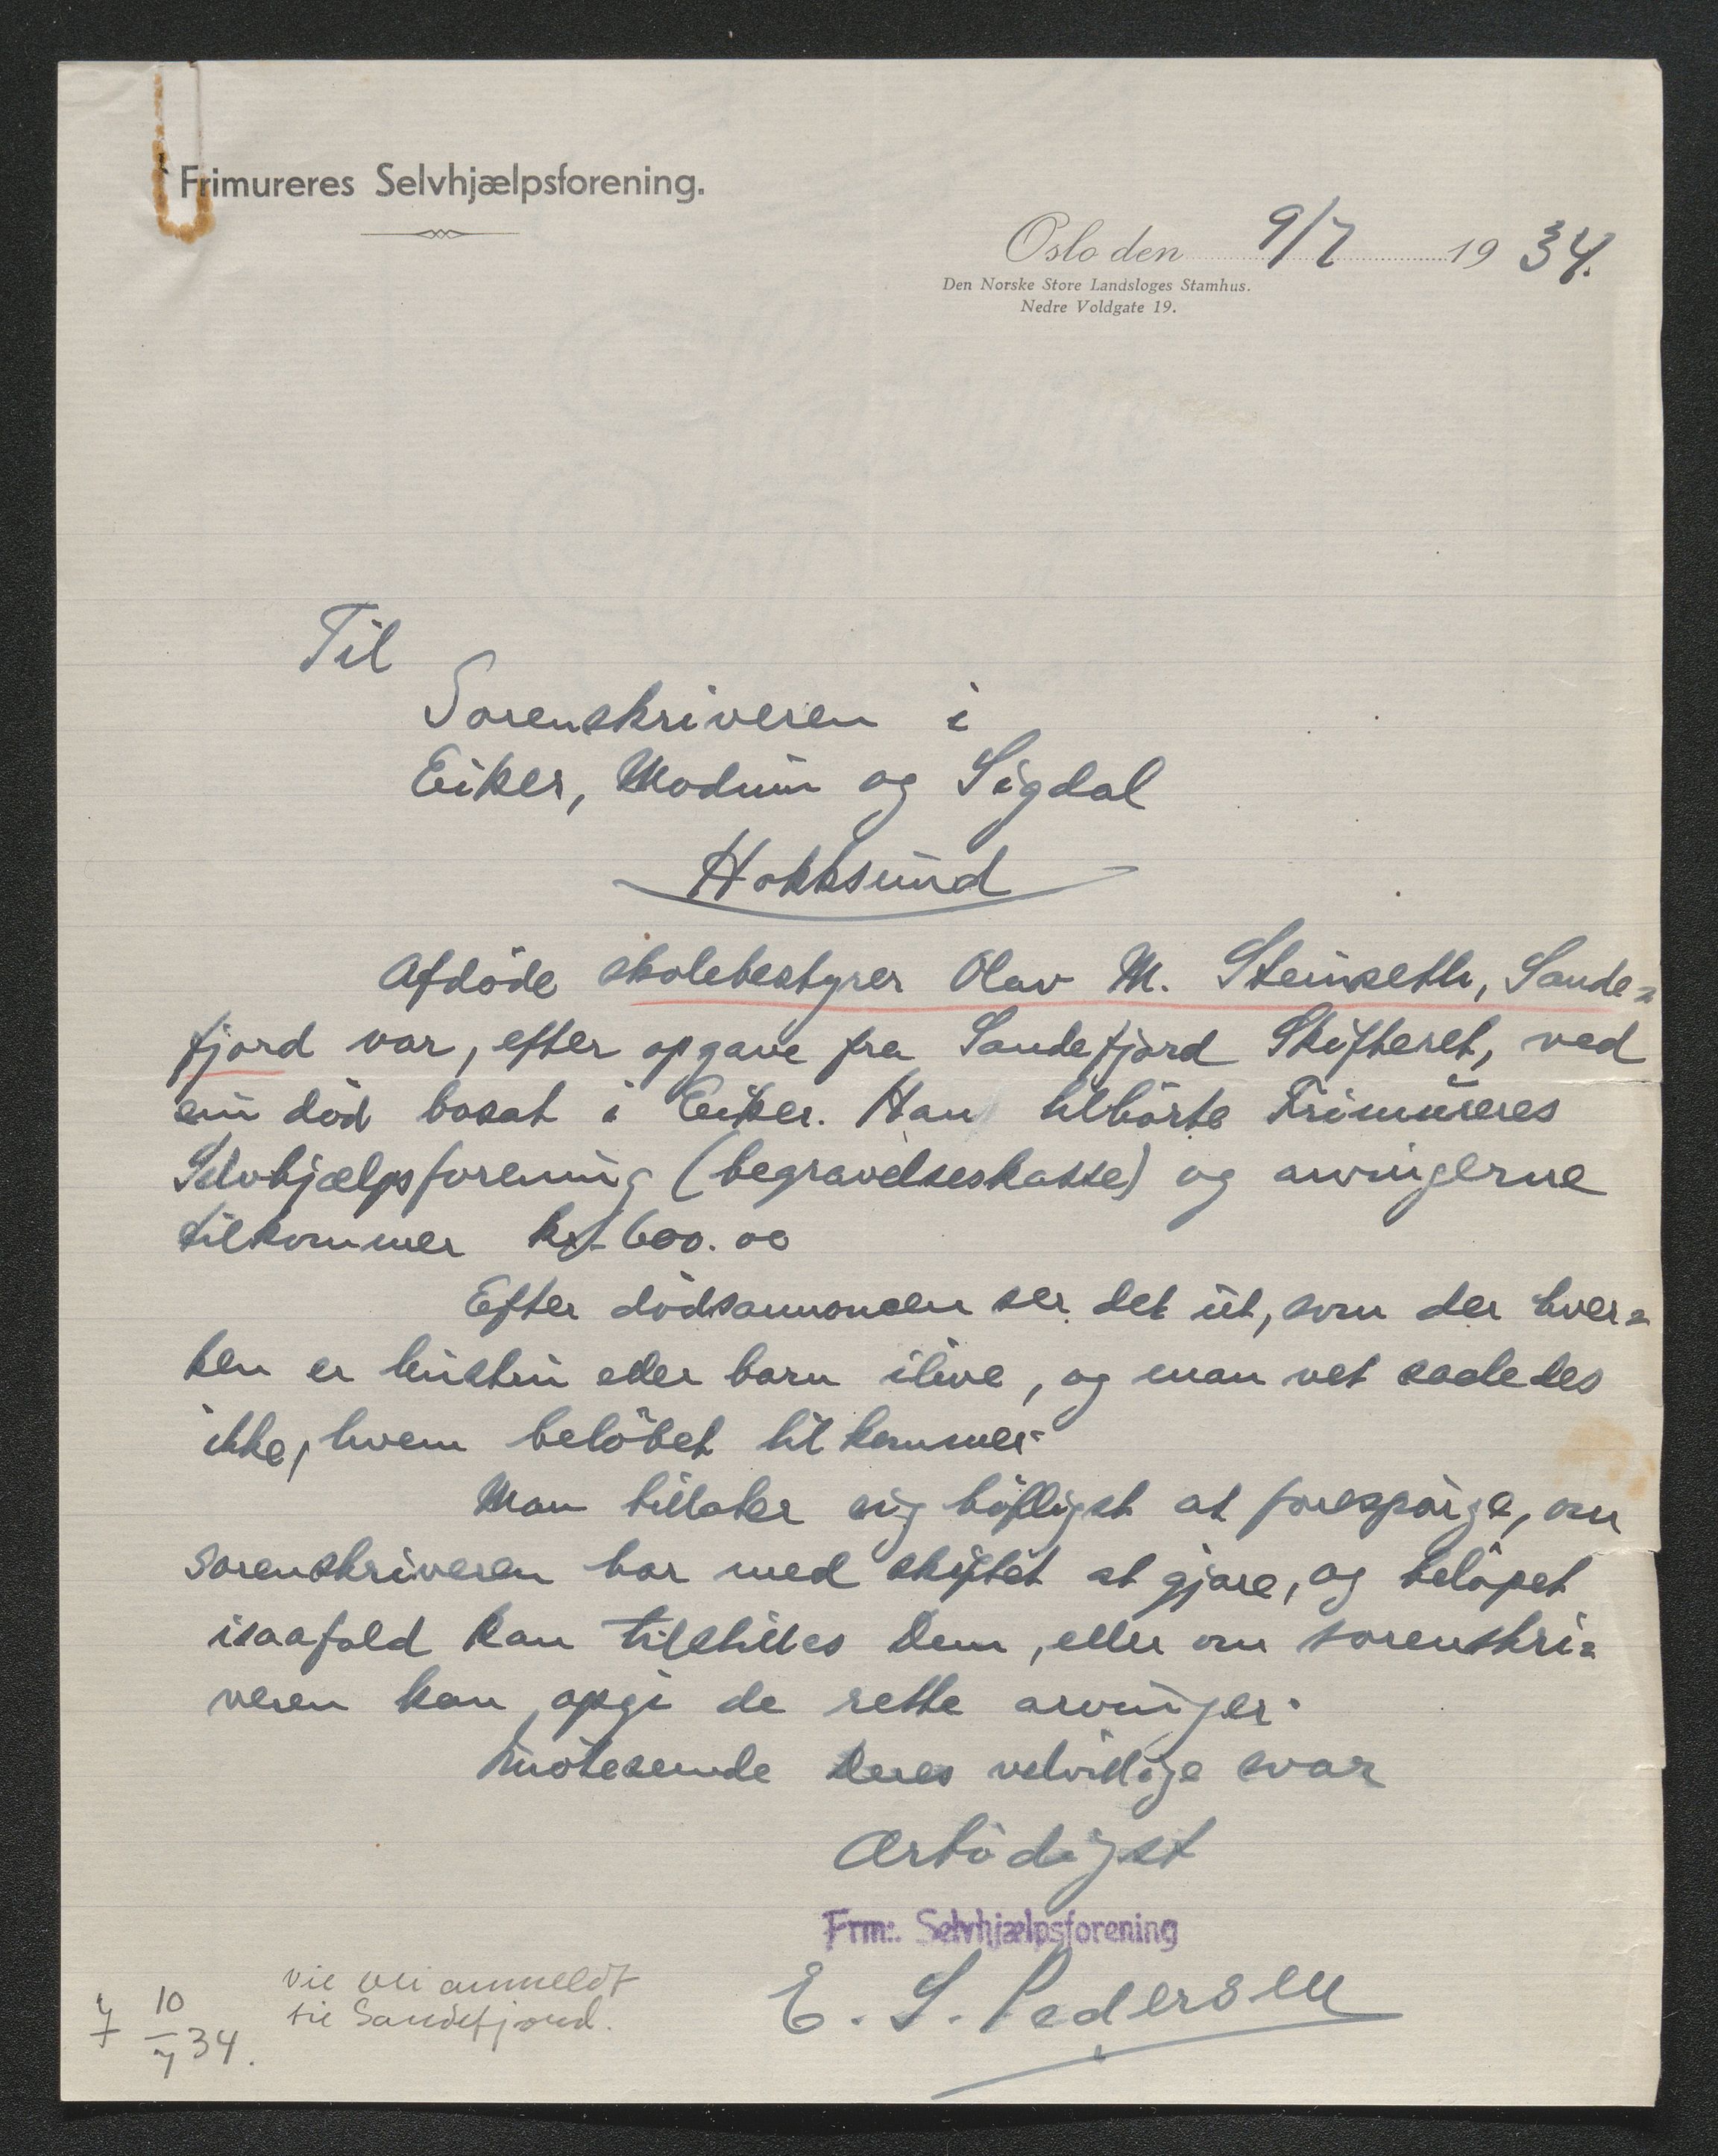 Frimureres Selvhjælpsforening.
Oslo den 9/7 1934.
Den Norske Store Landsloges Stamhus.
Nedre Voldgate 19.
Til
Sorenskriveren i
Eiker, Modum og Sigdal
Hokksund
Afdøde skolebestyrer Olav M. Steinseth, Sande=
fjord var, efter opgave fra Sandefjord Skifteret, ved
sin død bosat i Eiker. Han tilhørte Frimureres
Selvhjælpsforening (begravelseskasse) og arvingerne
tilkommer kr. 600.00
Efter dødsannoncen ser det ut, som der hver=
ken er hustru eller barn ilive, og man vet saaledes
ikke, hvem beløbet tilkommer.
Man tillater sig høfligst at forespørge, om
sorenskriveren har med skiftet at gjøre, og beløpet
isaafald kan tilstilles Dem, eller om sorenskri=
veren kan opgi de rette arvinger.
Imøteseende Deres velvillige svar
Ærbødigst
Frm:. Selvhjælpsforening
E. S. Pedersen
vil bli anmeldt
til Sandefjord.
10/7 34.